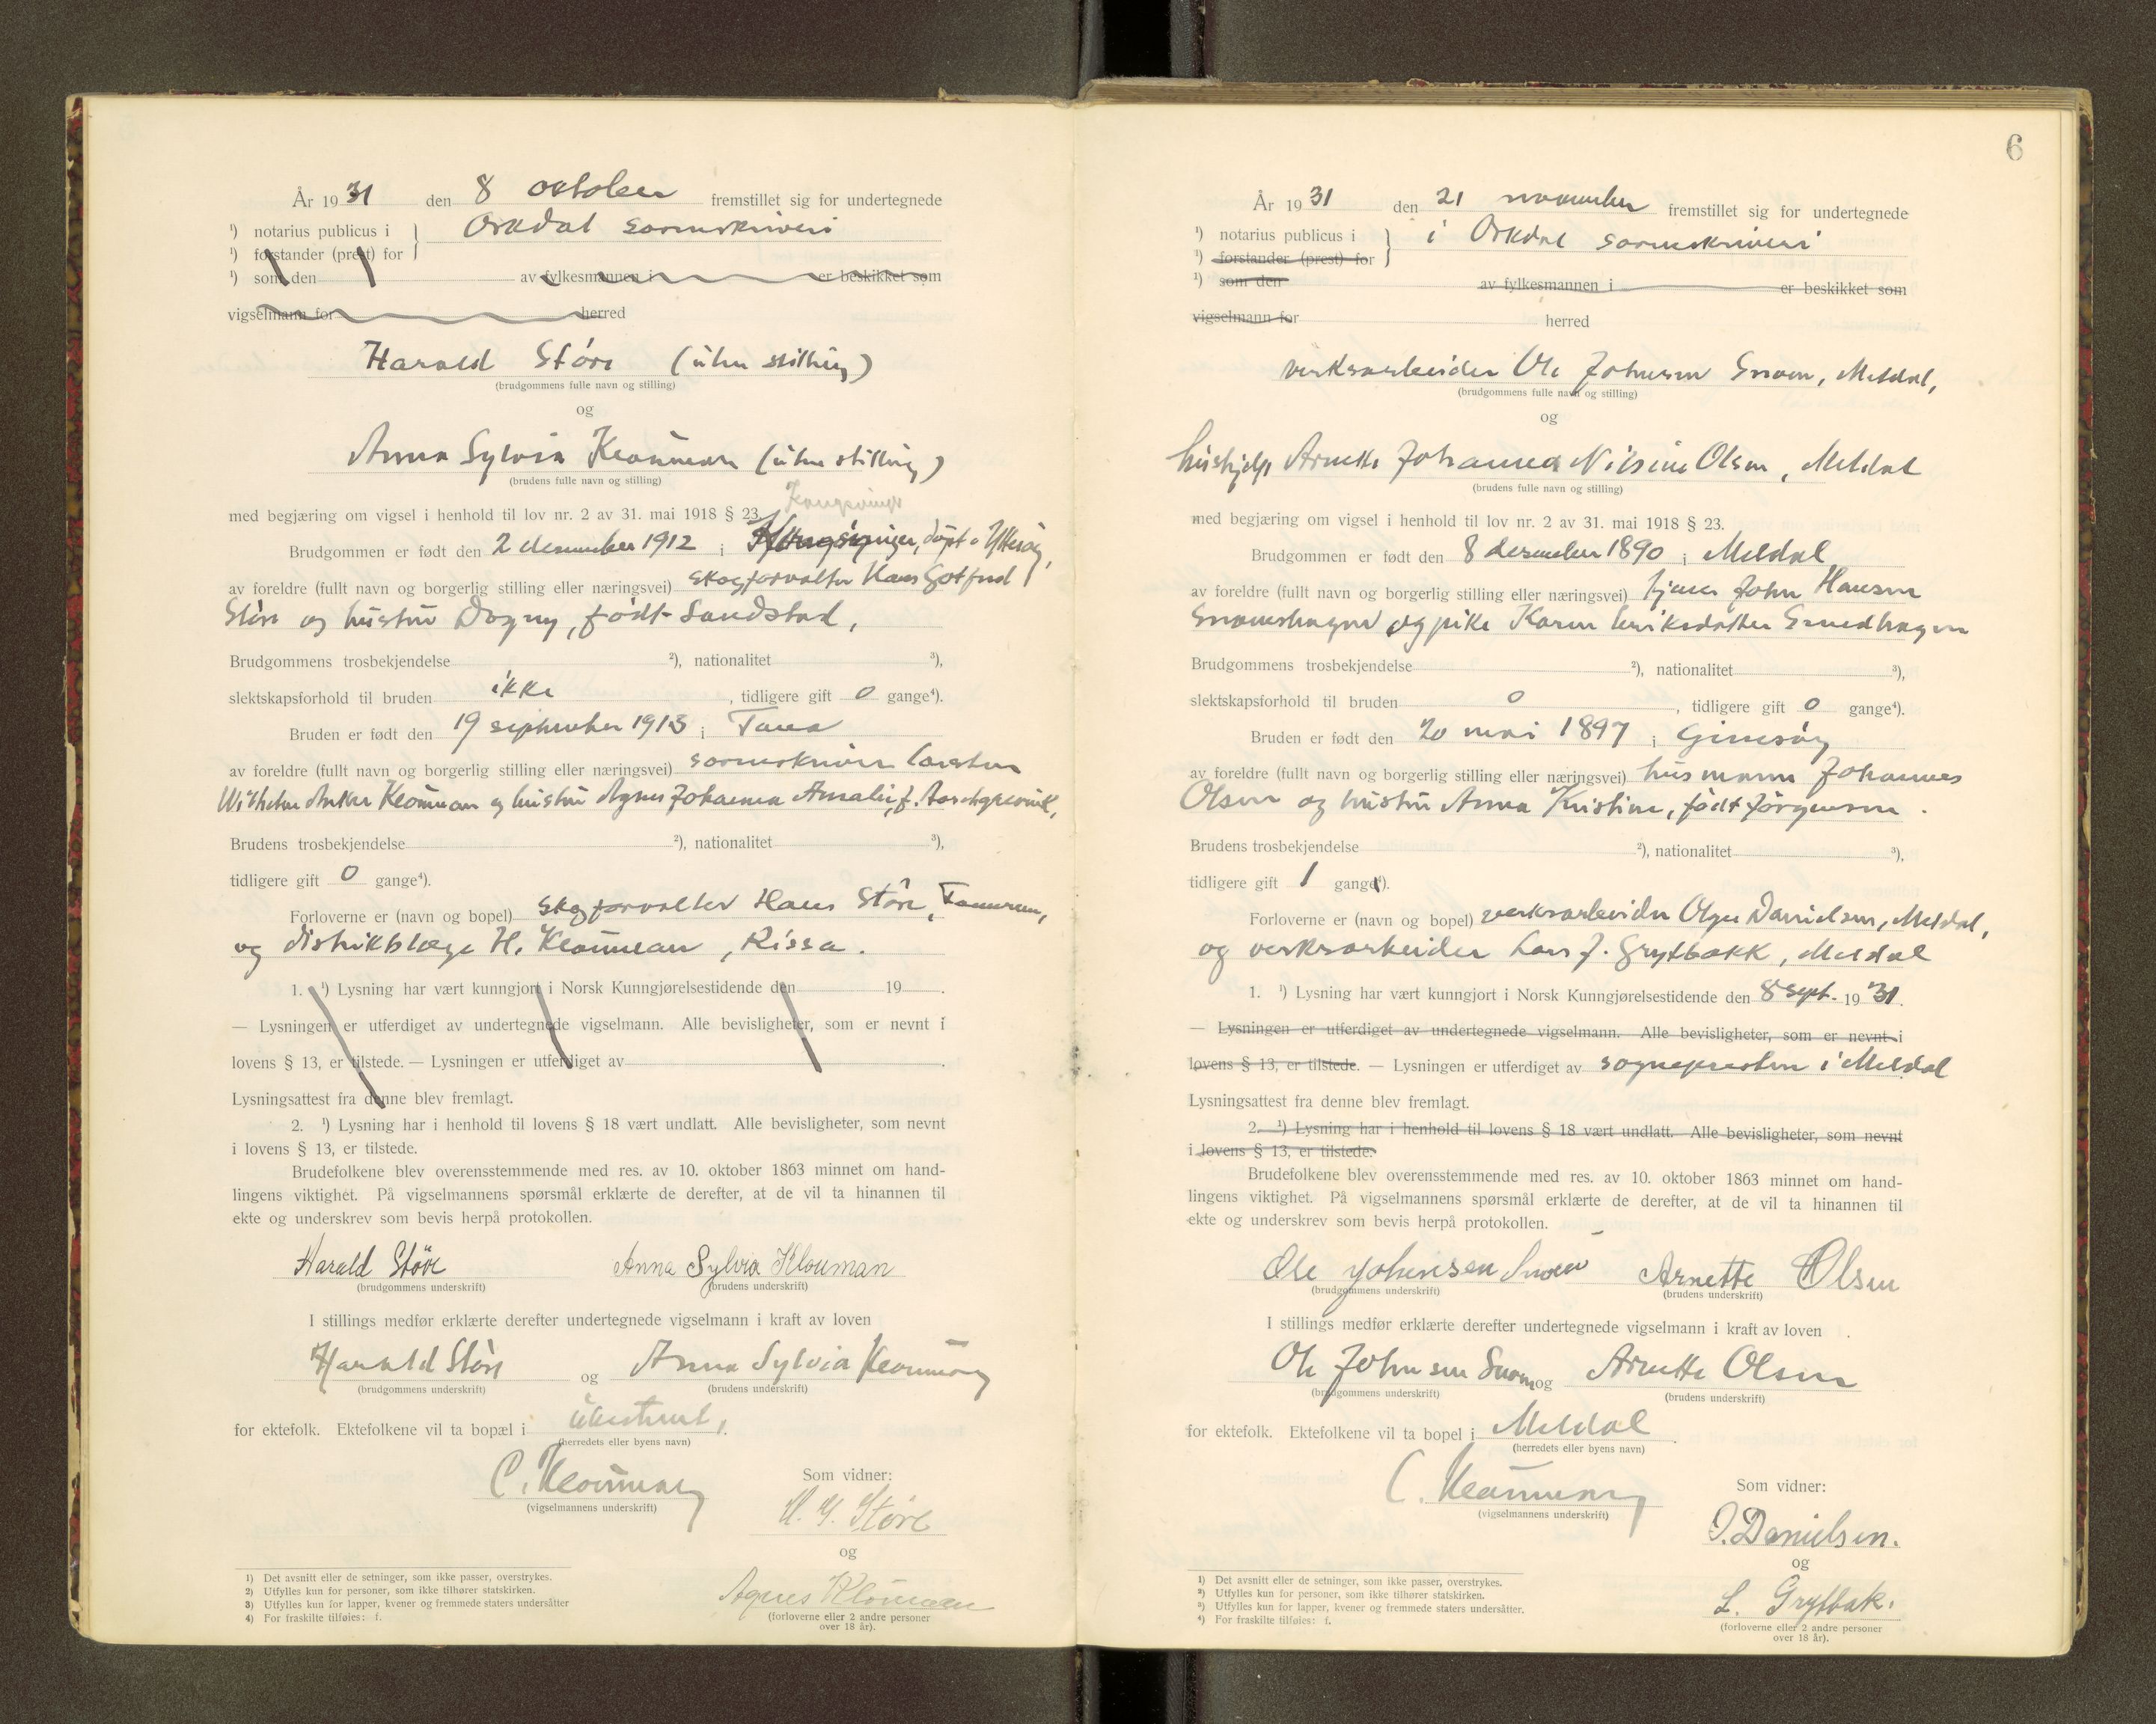 År 1931 den 8 oktober fremstillet sig for undertegnede
¹) notarius publicus i } Orkdal sorenskriveri
¹) forstander (prest) for
¹) som den av fylkesmannen i er beskikket som
vigselmann for herred
Harald Störe (uten stilling)
(brudgommens fulle navn og stilling)
og
Anna Sylvia Klouman (uten stilling)
(brudens fulle navn og stilling)
Kongsvinger
med begjæring om vigsel i henhold til lov nr. 2 av 31. mai 1918 § 23.
Brudgommen er født den 2 desember 1912 i Kongsvinger, döpt i Ytteröy,
av foreldre (fullt navn og borgerlig stilling eller næringsvei) skogforvalter Hans Gotfred
Störe og hustru Dagny, født Sandstad,
Brudgommens trosbekjendelse ²), nationalitet ³),
slektskapsforhold til bruden ikke, tidligere gift 0 gange⁴).
Bruden er født den 19 september 1913 i Tana
av foreldre (fullt navn og borgerlig stilling eller næringsvei) sorenskriver Carsten
Wilhelm Anker Klouman og hustru Agnes Johanna Amalie, f.
Brudens trosbekjendelse ²), nationalitet ³),
tidligere gift 0 gange⁴).
Forloverne er (navn og bopel) skogforvalter Hans Störe,
og distriktslæge H. Klouman, Rissa.
1. ¹) Lysning har vært kunngjort i Norsk Kunngjørelsestidende den 19 .
— Lysningen er utferdiget av undertegnede vigselmann. Alle bevisligheter, som er nevnt i
lovens § 13, er tilstede. — Lysningen er utferdiget av .
Lysningsattest fra denne blev fremlagt.
2. ¹) Lysning har i henhold til lovens § 18 vært undlatt. Alle bevisligheter, som nevnt
i lovens § 13, er tilstede.
Brudefolkene blev overensstemmende med res. av 10. oktober 1863 minnet om hand-
lingens viktighet. På vigselmannens spørsmål erklærte de derefter, at de vil ta hinannen til
ekte og underskrev som bevis herpå protokollen.
Harald Störe Anna Sylvia Klouman
(brudgommens underskrift) (brudens underskrift)
I stillings medfør erklærte derefter undertegnede vigselmann i kraft av loven
Harald Störe og Anna Sylvia Klouman
(brudgommens underskrift) (brudens underskrift)
for ektefolk. Ektefolkene vil ta bopæl i ubestemt.
(herredets eller byens navn)
C. Klouman
(vigselmannens underskrift)
Som vidner:
H. G. Störe
og
Agnes Klouman
(forloverne eller 2 andre personer
over 18 år).
1) Det avsnitt eller de setninger, som ikke passer, overstrykes.
2) Utfylles kun for personer, som ikke tilhører statskirken.
3) Utfylles kun for lapper, kvener og fremmede staters undersåtter
4) For fraskilte tilføies: f.
6
År 1931 den 21 november fremstillet sig for undertegnede
¹) notarius publicus i } i Orkdal sorenskriveri
¹) forstander (prest) for
¹) som den av fylkesmannen i er beskikket som
vigselmann for herred
verksarbeider Ole Johnsen Snoen, Meldal,
(brudgommens fulle navn og stilling)
og
hushjelp Arnette Johanna Nilsine Olsen, Meldal
(brudens fulle navn og stilling)
med begjæring om vigsel i henhold til lov nr. 2 av 31. mai 1918 § 23.
Brudgommen er født den 8 desember 1890 i Meldal
av foreldre (fullt navn og borgerlig stilling eller næringsvei) tjener John Hansen
og pike Karen Eriksdatter
Brudgommens trosbekjendelse ²), nationalitet ³),
slektskapsforhold til bruden 0, tidligere gift 0 gange⁴).
Bruden er født den 20 mai 1897 i Gimsöy
av foreldre (fullt navn og borgerlig stilling eller næringsvei) husmann Johannes
Olsen og hustru Anna Kristine, født Jörgensen.
Brudens trosbekjendelse ²), nationalitet ³),
tidligere gift 1 gange⁴).
Forloverne er (navn og bopel) verksarbeider Olger Danielsen, Meldal,
og verksarbeider Lars J. Grytbakk, Meldal
1. ¹) Lysning har vært kunngjort i Norsk Kunngjørelsestidende den 8 sept. 1931.
— Lysningen er utferdiget av undertegnede vigselmann. Alle bevisligheter, som er nevnt i
lovens § 13, er tilstede. — Lysningen er utferdiget av sognepresten i Meldal
Lysningsattest fra denne blev fremlagt.
2. ¹) Lysning har i henhold til lovens § 18 vært undlatt. Alle bevisligheter, som nevnt
i lovens § 13, er tilstede.
Brudefolkene blev overensstemmende med res. av 10. oktober 1863 minnet om hand-
lingens viktighet. På vigselmannens spørsmål erklærte de derefter, at de vil ta hinannen til
ekte og underskrev som bevis herpå protokollen.
Ole Johnsen Snoen Arnette Olsen
(brudgommens underskrift) (brudens underskrift)
I stillings medfør erklærte derefter undertegnede vigselmann i kraft av loven
Ole Johnsen Snoen og Arnette Olsen
(brudgommens underskrift) (brudens underskrift)
for ektefolk. Ektefolkene vil ta bopel i Meldal
(herredets eller byens navn)
C. Klouman
(vigselmannens underskrift)
Som vidner:
O. Danielsen.
og
L. Grytbak.
(forloverne eller 2 andre personer
over 18 år).
¹) Det avsnitt eller de setninger, som ikke passer, overstrykes.
²) Utfylles kun for personer, som ikke tilhører statskirken.
³) Utfylles kun for lapper, kvener og fremmede staters undersåtter.
⁴) For fraskilte tilføies: f.